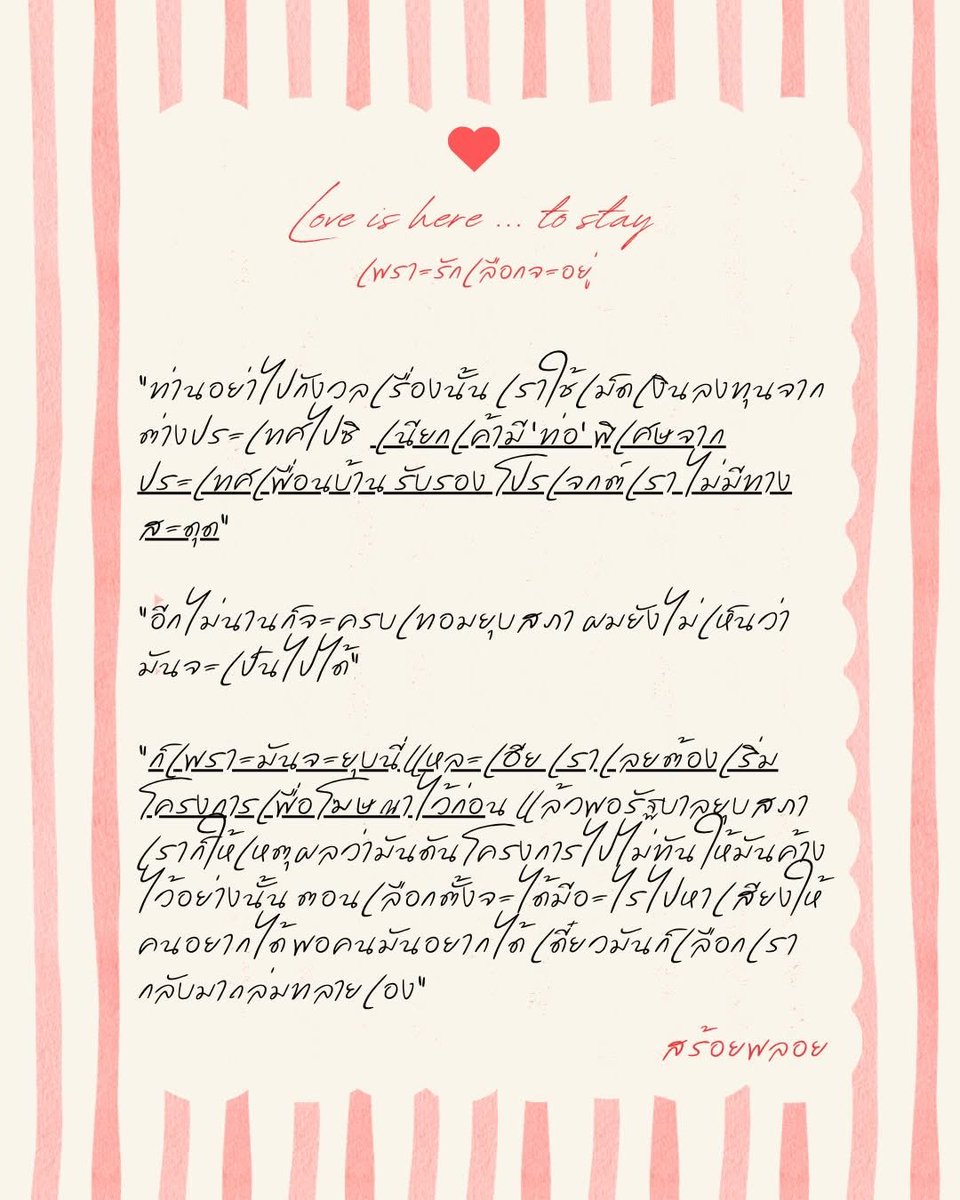 Love is here ... to stay
เพราะรักเลือกจะอยู่
"ท่านอย่าไปกังวลเรื่องนั้น เราใช้เม็ดเงินลงทุนจาก
ต่างประเทศไปซิ เนียกเค้ามี 'ท่อ' พิเศษจาก
ประเทศเพื่อนบ้าน รับรองโปรเจกต์เราไม่มีทาง
สะดุด"
"อีกไม่นานก็จะครบเทอมยุบสภา ผมยังไม่เห็นว่า
มันจะเป็นไปได้"
"ก็เพราะมันจะยุบนี่แหละเฮีย เราเลยต้องเริ่ม
โครงการเพื่อโฆษณาไว้ก่อน แล้วพอรัฐบาลยุบสภา
เราก็ให้เหตุผลว่ามันดันโครงการไปไม่ทัน ให้มันค้าง
ไว้อย่างนั้น ตอนเลือกตั้งจะได้มีอะไรไปหาเสียงให้
คนอยากได้พอคนมันอยากได้ เดี๋ยวมันก็เลือกเรา
กลับมาถล่มทลายเอง"
สร้อยพลอย